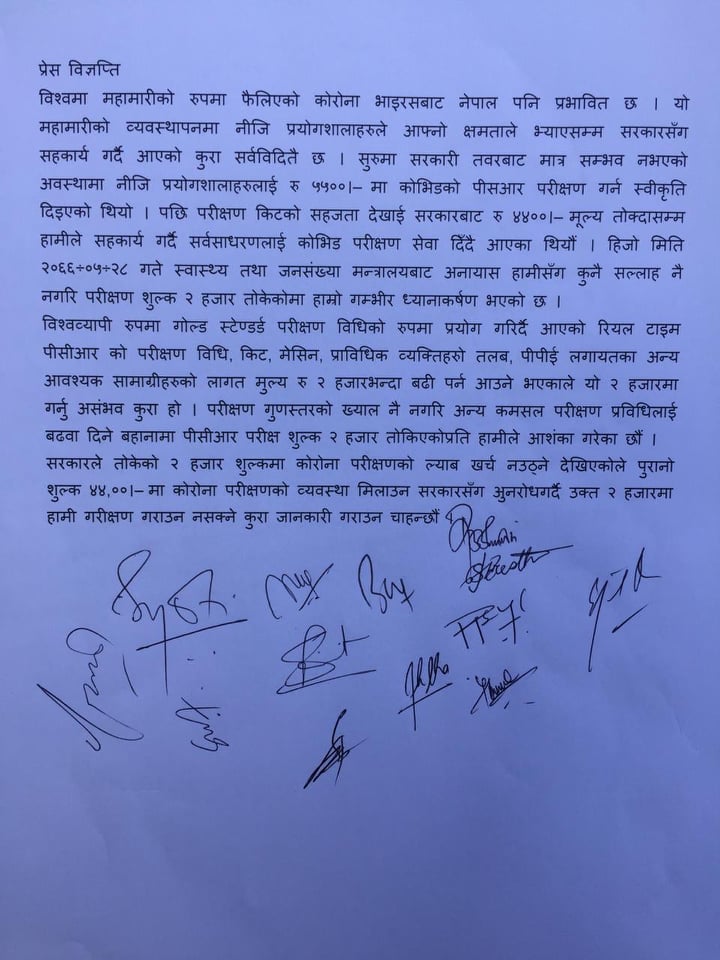 प्रेस विज्ञप्ति
विश्वमा महामारीको रुपमा फैलिएको कोरोना भाइरसबाट नेपाल पनि प्रभावित छ । यो
महामारीको व्यवस्थापनमा नीजि प्रयोगशालाहरुले आफ्नो क्षमताले भ्याएसम्म सरकारसँग
सहकार्य गर्दै आएको कुरा सर्वविदितै छ । सुरुमा सरकारी तवरबाट मात्र सम्भव नभएको
अवस्थामा नीजि प्रयोगशालाहरुलाई रु ५५००।– मा कोभिडको पीसआर परीक्षण गर्न स्वीकृति
दिइएको थियो । पछि परीक्षण किटको सहजता देखाई सरकारबाट रु ४४००।– मूल्य तोक्दासम्म
हामीले सहकार्य गर्दै सर्वसाधरणलाई कोभिड परीक्षण सेवा दिँदै आएका थियौं । हिजो मिति
२०६६÷०५÷२८ गते स्वास्थ्य तथा जनसंख्या मन्त्रालयबाट अनायास हामीसँग कुनै सल्लाह नै
नगरि परीक्षण शुल्क २ हजार तोकेकोमा हाम्रो गम्भीर ध्यानाकर्षण भएको छ ।
विश्वव्यापी रुपमा गोल्ड स्टेण्डर्ड परीक्षण विधिको रुपमा प्रयोग गरिर्दै आएको रियल टाइम
पीसीआर को परीक्षण विधि, किट, मेसिन, प्राविधिक व्यक्तिहरो तलब, पीपीई लगायतका अन्य
आवश्यक सामाग्रीहरुको लागत मुल्य रु २ हजारभन्दा बढी पर्न आउने भएकाले यो २ हजारमा
गर्नु असंभव कुरा हो । परीक्षण गुणस्तरको ख्याल नै नगरि अन्य कमसल परीक्षण प्रविधिलाई
बढवा दिने बहानामा पीसीआर परीक्ष शुल्क २ हजार तोकिएकोप्रति हामीले आशंका गरेका छौं ।
सरकारले तोकेको २ हजार शुल्कमा कोरोना परीक्षणको ल्याब खर्च नउठ्ने देखिएकोले पुरानो
शुल्क ४४,००।– मा कोरोना परीक्षणको व्यवस्था मिलाउन सरकारसँग अुनरोधगर्दै उक्त २ हजारमा
हामी गरीक्षण गराउन नसक्ने कुरा जानकारी गराउन चाहन्छौं